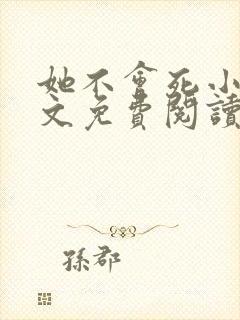 她不會死小
文免費閱讀
孫郡